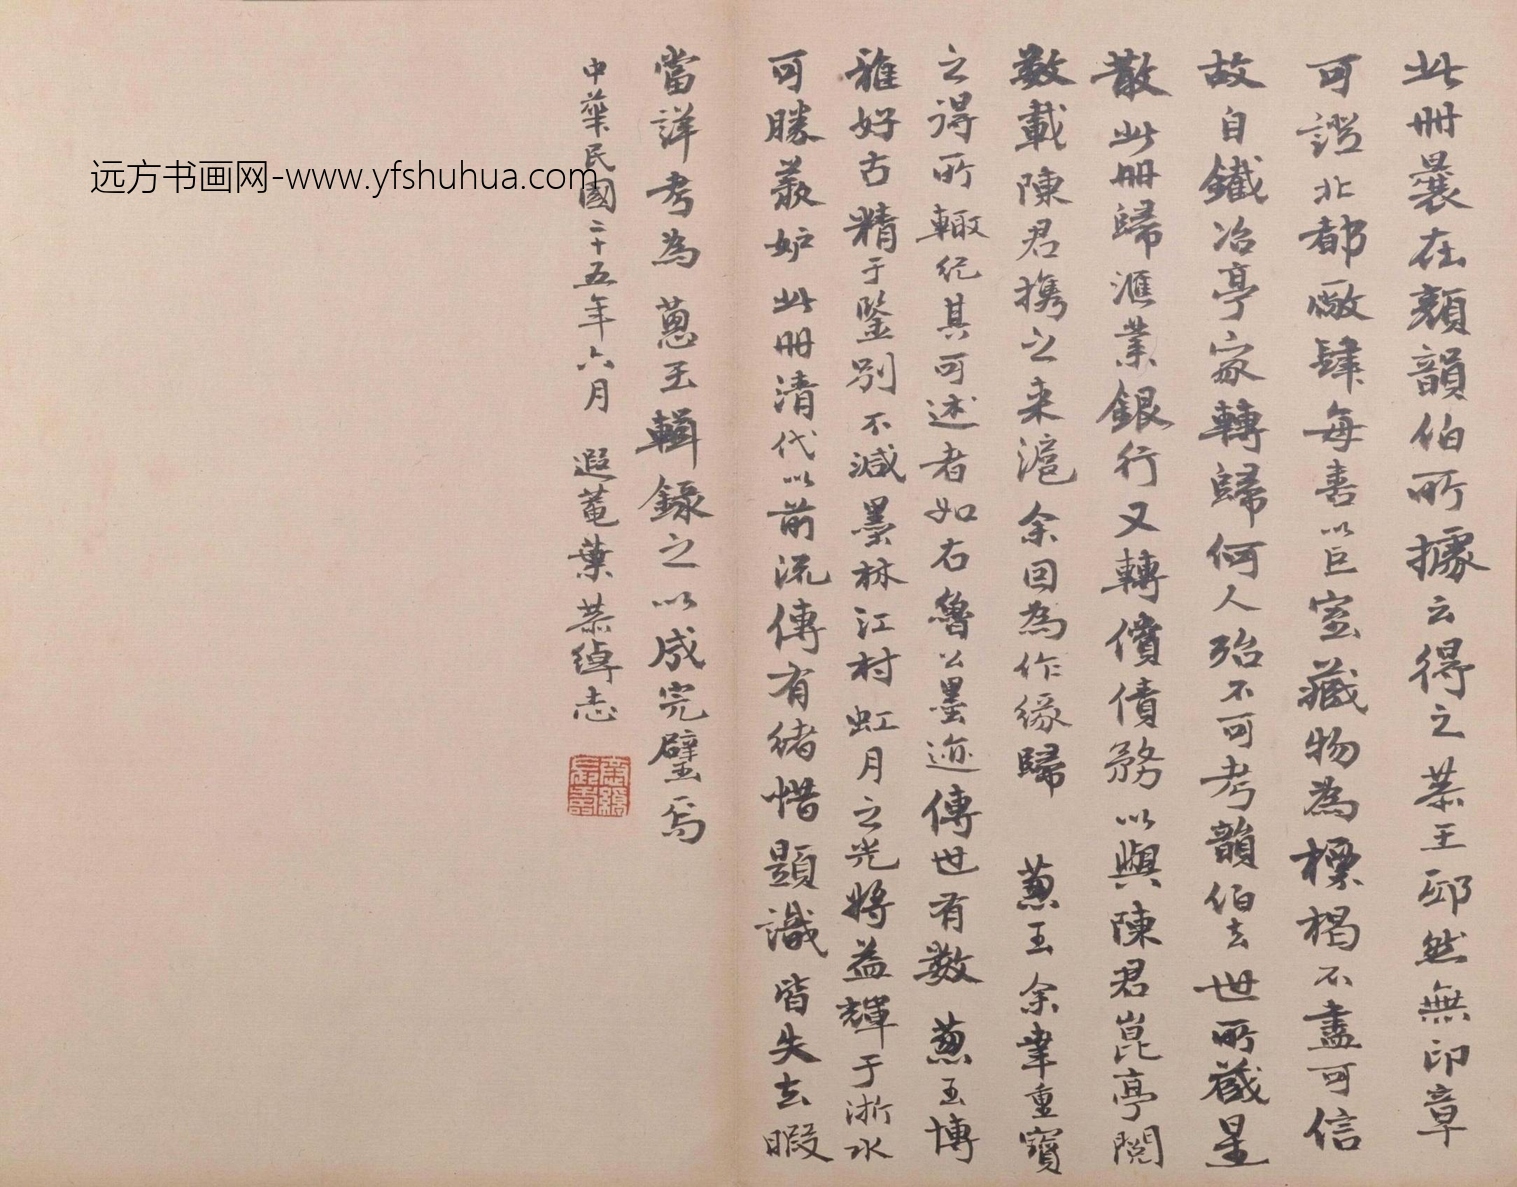 此冊曩在顏韻伯所據云得之恭王邸然無印章
可證北都厰肆每喜以巨室藏物為標楬不盡可信
故自鐵冶亭家轉歸何人殆不可考韻伯去世所藏星
散此冊歸滙業銀行又轉償債務以與陳君崑亭閱
數載陳君携之来滬余回為作緣歸 蔥玉余幸重寶
之得所輙纪其可述者如右魯公墨迹傳世有數蔥玉博
雅好古精于鑒別不減墨林江村虹月之光將益輝于浙水
可勝羨妒此冊清代以前流傳有緒惜題識皆失去暇
當詳考為蔥玉輯錄之以成完璧焉
中華民國二十五年六月 遐菴葉恭綽志
远方书画网-www.yfshuhua.com